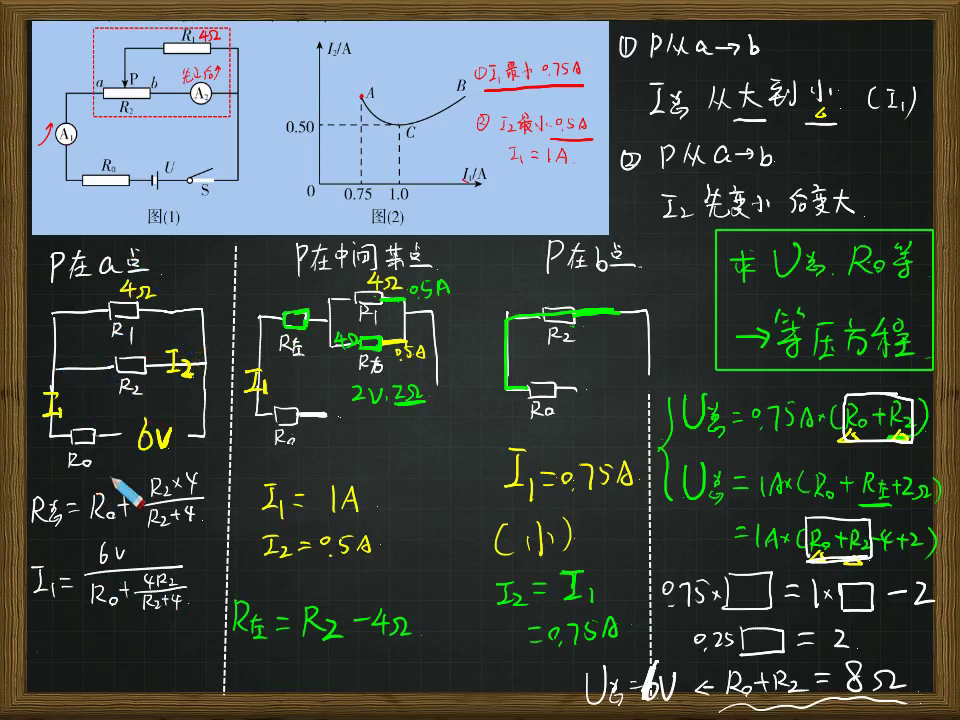 R₁ 4Ω
a P b
先↓后↑
R₂ A₂
A₁
R₀ U S
图(1)
I₂/A
A B
0.50 C
0 0.75 1.0 I₁/A
图(2)
①I₁最小 0.75A
② I₂最小 0.5A
I₁=1A
① P从a→b
I总 从大到小 (I₁)
② P从a→b
I₂ 先变小 后变大
求 U总. R₀等
→等压方程
P在a点
4Ω
R₁
I₂
R₂
I₁
6V
R₀
R总=R₀+R₂×4/R₂+4
I₁=6V/R₀+4R₂/R₂+4
P在中间某点
4Ω 0.5A
R₁
R左 4Ω R右 0.5A
I₁
2V.2Ω
R₀
I₁=1A
I₂=0.5A
R左=R₂-4Ω
P在b点
R₂
R₀
I₁=0.75A
(小)
I₂=I₁
=0.75A
U总=0.75A×(R₀+R₂)
U总=1A×(R₀+R左+2Ω)
=1A×(R₀+R₂-4+2)
0.75×□=1×□-2
0.25□=2
U总=6V ← R₀+R₂=8Ω